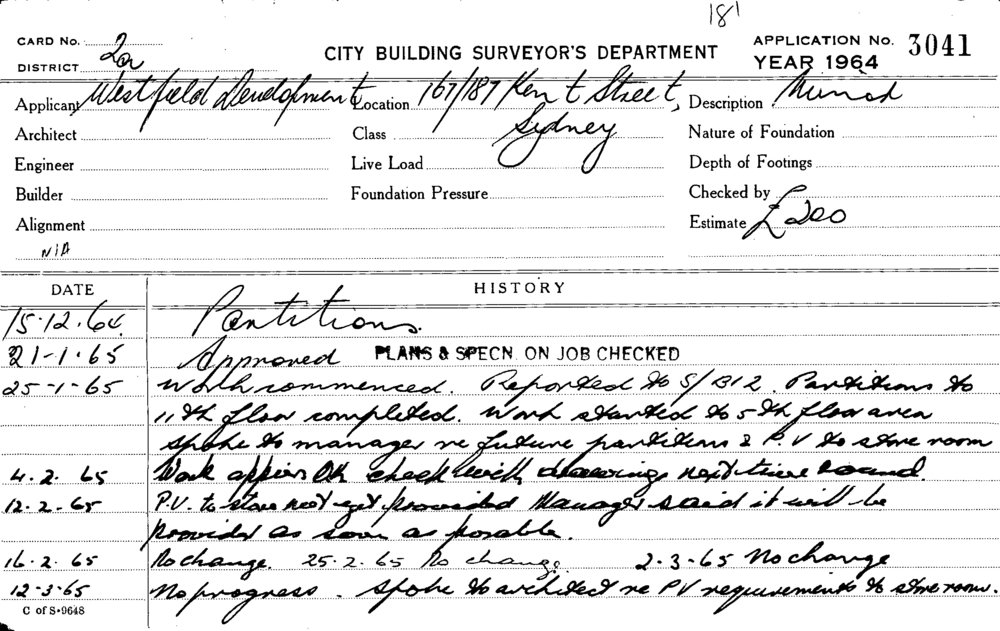 181
CARD No. 2a CITY BUILDING SURVEYOR'S DEPARTMENT APPLICATION No. 3041
DISTRICT YEAR 1964
Applicant Westfield Development Location 167/187 Kent Street, Description Minor
Architect Class Sydney Nature of Foundation
Engineer Live Load Depth of Footings
Builder Foundation Pressure Checked by
Alignment Estimate £200
N/A
DATE HISTORY
15.12.64. Partitions.
21-1-65 Approved PLANS & SPECN. ON JOB CHECKED
25-1-65 Work commenced. Reported to S/B12. Partitions to
11th floor completed. Work started to 5th floor area
spoke to manager re future partitions & P.V to store room
4.2.65 Work appears OK check with drawings next time round.
12-2-65 P.V. to store not yet provided Manager said it will be
provided as soon as possible.
16.2.65 No change. 25-2-65 No change. 2-3-65 No change
12-3-65 No progress. Spoke to architect re PV requirements to store room.
C of S-9648